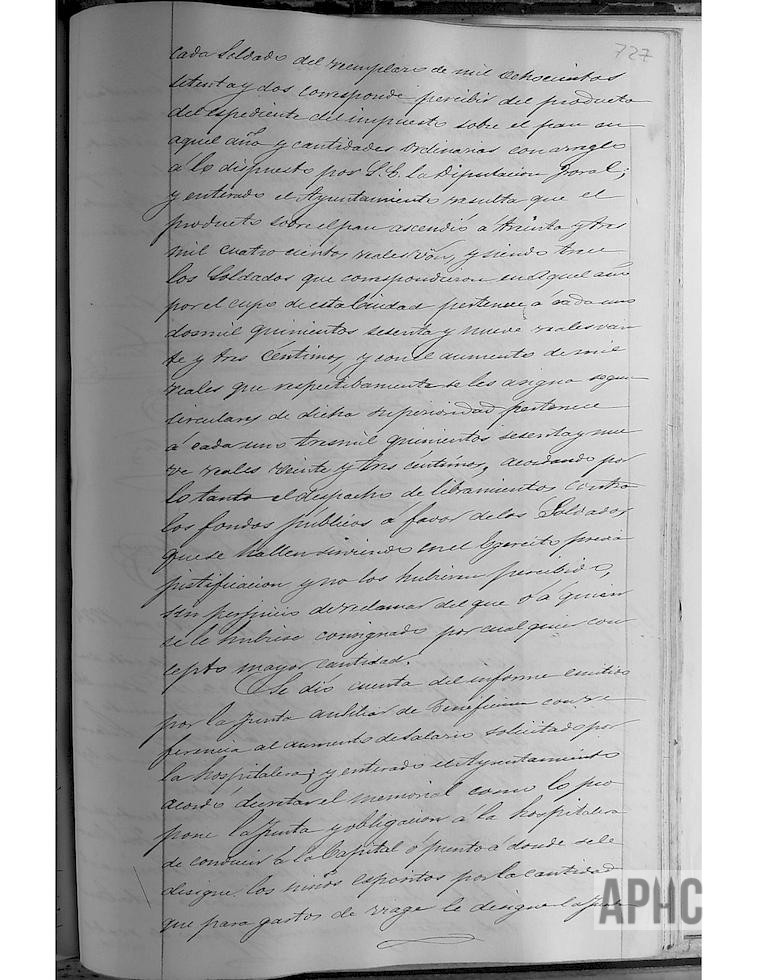 727
cada Soldado del reemplazo de mil ochocientos
setenta y dos corresponde percibir del producto
del espediente del impuesto sobre el pan en
aquel año y cantidades ordinarias con arreglo
á lo dispuesto por S.E. la Diputacion foral;
y enterado el Ayuntamiento resulta que el
producto sobre el pan ascendió á treinta y tres
mil cuatrocientos reales von, y siendo trece
los Soldados que correspondieron en aquel año
por el cupo de esta Ciudad pertenece á cada uno
dosmil quinientos sesenta y nueve reales vein
te y tres céntimos, y con el aumento de mil
reales que respectibamente se les asigna segun
circulares de dicha superioridad pertenece
á cada uno tresmil quinientos sesenta y nue
ve reales veinte y tres céntimos, acordando por
lo tanto el despacho de libramientos contra
los fondos públicos á favor de los Soldados
que se hallen sirviendo en el Egercito previa
justificacion y no los hubieren percibido,
sin perjuicio de reclamar del que ó á quien
se le hubiese consignado por cualquier con
cepto mayor cantidad.
Se dió cuenta del informe emitido
por la Junta ausiliar de Beneficencia con re
ferencia al aumento de salario solicitado por
la hospitalera; y enterado el Ayuntamiento
acordó decretar el memorial como lo pro
pone la Junta y obligacion á la hospitalera
de conducir á la Capital ó punto á donde se le
designe los niños espositos por la cantidad
que para gastos de viage le designe la Junta
APHC